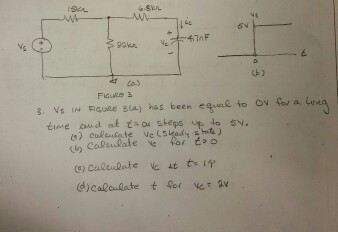 15kΩ 6.8kΩ
Vs 5V
ic
Vs 22kΩ Vc 4.7nF
t
0
(a) (b)
FIGURE 3
3. Vs IN FIGURE 3(a) has been equal to 0V for a long
time and at t=0s steps up to 5V.
(a) calculate Vc (steady state)
(b) Calculate Vc for t>0
(c) calculate Vc at t=
(d) calculate t for Vc = 2V